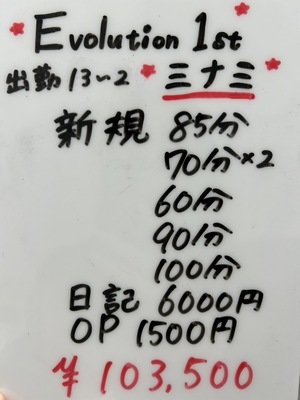 Evolution 1st
出勤 13~2 三ナミ
新規 85分
70分×2
60分
90分
100分
日記 6000円
OP 1500円
¥103,500